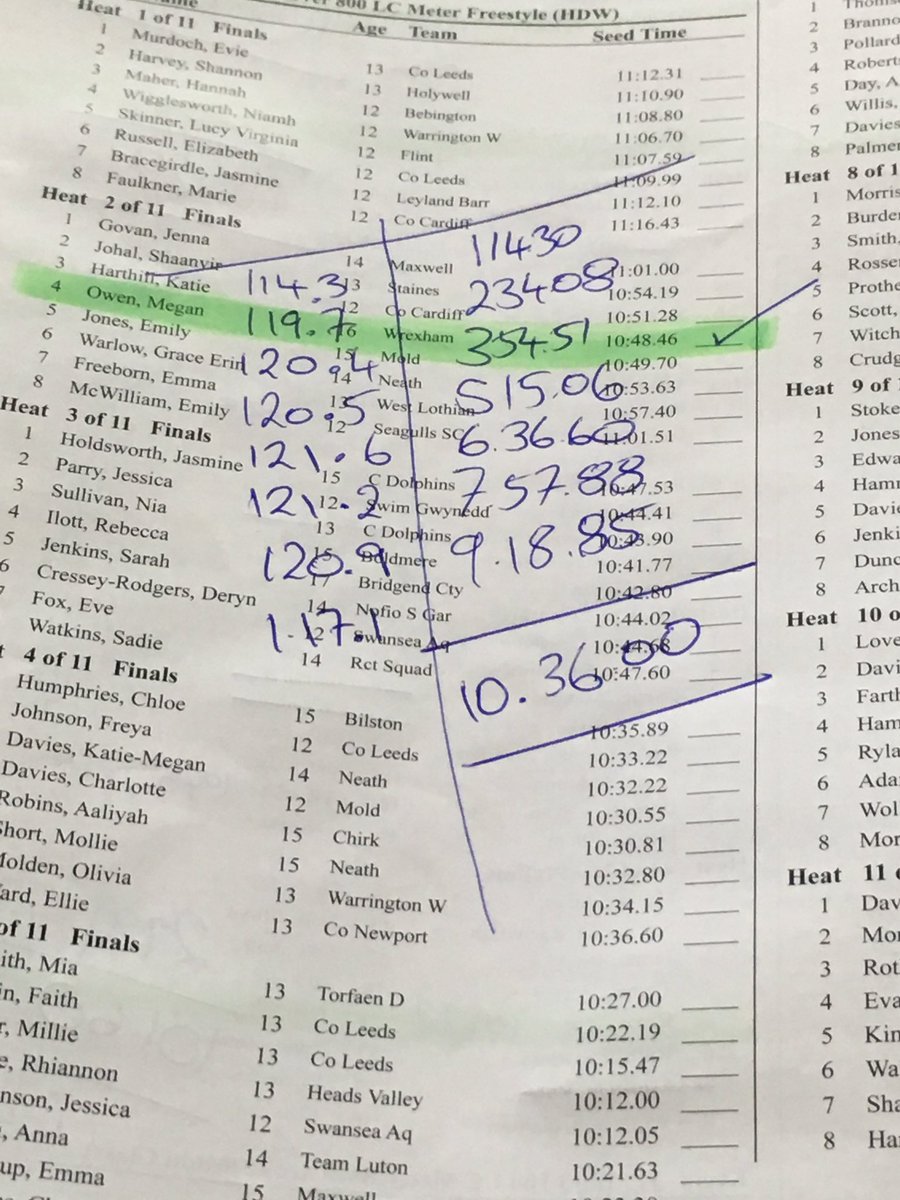 800 LC Meter Freestyle (HDW)
Age Team Seed Time
Heat 1 of 11 Finals
1 Murdoch, Evie 13 Co Leeds 11:12.31
2 Harvey, Shannon 13 Holywell 11:10.90
3 Maher, Hannah 12 Bebington 11:08.80
4 Wigglesworth, Niamh 12 Warrington W 11:06.70
5 Skinner, Lucy Virginia 12 Flint 11:07.59
6 Russell, Elizabeth 12 Co Leeds 11:09.99
7 Bracegirdle, Jasmine 12 Leyland Barr 11:12.10
8 Faulkner, Marie 12 Co Cardiff 11:16.43
Heat 2 of 11 Finals
1 Govan, Jenna 14 Maxwell 11:01.00
2 Johal, Shaanvir 13 Staines 10:54.19
3 Harthill, Katie 12 Co Cardiff 10:51.28
4 Owen, Megan 16 Wrexham 10:48.46
5 Jones, Emily 15 Mold 10:49.70
6 Warlow, Grace Erin 14 Neath 10:53.63
7 Freeborn, Emma 13 West Lothian 10:57.40
8 McWilliam, Emily 12 Seagulls SC 11:01.51
Heat 3 of 11 Finals
1 Holdsworth, Jasmine 15 C Dolphins 10:47.53
2 Parry, Jessica 12 Swim Gwynedd 10:44.41
3 Sullivan, Nia 13 C Dolphins 10:43.90
4 Ilott, Rebecca 15 Boldmere 10:41.77
5 Jenkins, Sarah 17 Bridgend Cty 10:42.80
6 Cressey-Rodgers, Deryn 14 Nofio S Gar 10:44.02
Fox, Eve 12 Swansea Aq 10:44.68
Watkins, Sadie 14 Rct Squad 10:47.60
4 of 11 Finals
Humphries, Chloe 15 Bilston 10:35.89
Johnson, Freya 12 Co Leeds 10:33.22
Davies, Katie-Megan 14 Neath 10:32.22
Davies, Charlotte 12 Mold 10:30.55
Robins, Aaliyah 15 Chirk 10:30.81
Short, Mollie 15 Neath 10:32.80
Molden, Olivia 13 Warrington W 10:34.15
ard, Ellie 13 Co Newport 10:36.60
of 11 Finals
ith, Mia 13 Torfaen D 10:27.00
in, Faith 13 Co Leeds 10:22.19
r, Millie 13 Co Leeds 10:15.47
e, Rhiannon 13 Heads Valley 10:12.00
nson, Jessica 12 Swansea Aq 10:12.05
, Anna 14 Team Luton 10:21.63
up, Emma 15 Maxwell
114.3 11430
119.7 23408
120.4 354.51
120.5 515.06
121.6 6.36.60
121.2 757.88
120.9 9.18.85
1.17.1 10.36.00
1
2 Branno
3 Pollard
4 Robert
5 Day, A
6 Willis,
7 Davies
8 Palmer
Heat 8 of 1
1 Morris
2 Burde
3 Smith,
4 Rosse
5 Prothe
6 Scott,
7 Witch
8 Crudg
Heat 9 of 1
1 Stoke
2 Jones
3 Edwa
4 Ham
5 Davi
6 Jenki
7 Dunc
8 Arch
Heat 10 o
1 Love
2 Davi
3 Farth
4 Ham
5 Ryla
6 Ada
7 Wol
8 Mor
Heat 11
1 Dav
2 Mor
3 Rot
4 Eva
5 Kin
6 Wa
7 Sha
8 Ha